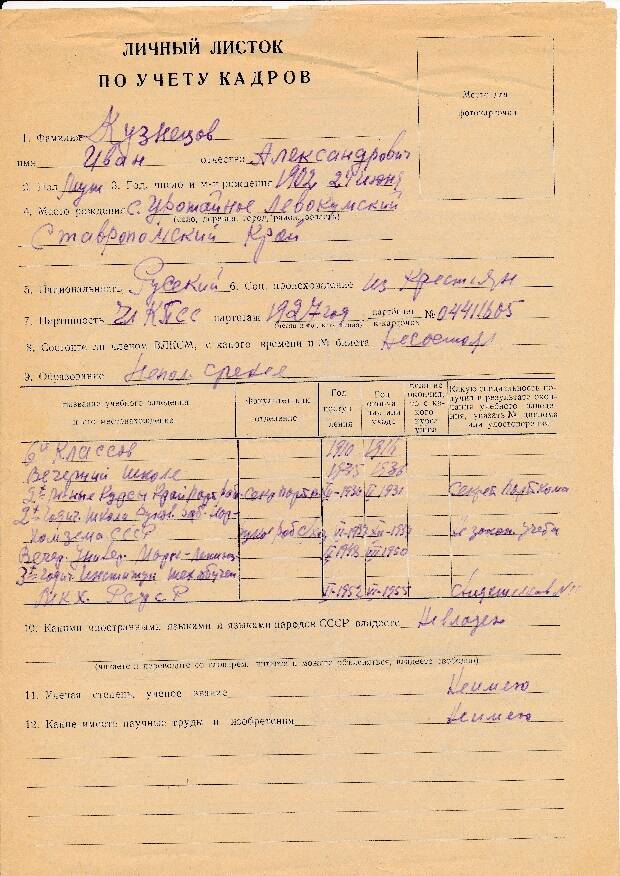 ЛИЧНЫЙ ЛИСТОК
ПО УЧЕТУ КАДРОВ
Место для
фотокарточки
1. Фамилия Кузнецов
имя Иван отчество Александрович
2. Пол Муж 3. Год, число и м-ц рождения 1902 24 июня
4. Место рождения с. Урожайное Левокумский
(село, деревня, город, район, область)
Ставропольский Край
5. Национальность Русский 6. Соц. происхождение из Крестьян
7. Партийность Чл КПСС партстаж 1927 год партбилет и карточка № 04411605
8. Состоите ли членом ВЛКСМ, с какого времени и № билета Несостоял
9. Образование Непол средне
название учебного заведения и его местонахождение
Факультет или отделение
Год поступления
Год окончания или ухода
Какую специальность получил в результате окончания учебного заведения, указать № диплома или удостоверения
6ть Классов 1910 1916
Вечерний школе 1935 1936
Курсы 1931 Секрет Парткома
2х годич. Школа
СССР
Вечер. Универ. 1948 1950
3х годич Институт тех обучен
РСФСР 1952 1955
10. Какими иностранными языками и языками народов СССР владеете Невладею
(читаете и переводите со словарем, читаете и можете объясняться, владеете свободно)
11. Ученая степень, ученое звание Неимею
12. Какие имеете научные труды и изобретения Неимею